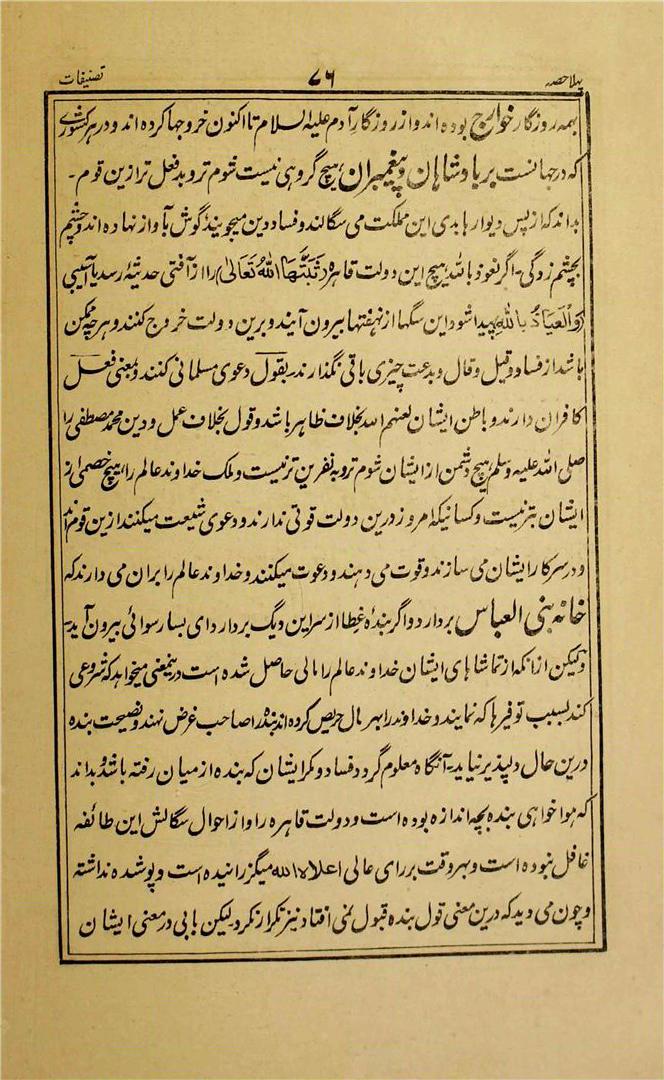 پہلا حصہ ۷۶ تصنیفات
بہمہ روزگار خوارج بودہ اند و از روزگار آدم علیہ السلام تا اکنون خروجہا کردہ اند و در ہر کشوری
کہ در جہانست بر بادشاہان و پیغمبران ہیچ گروہی نیست شوم تر و بد فعل تر ازین قوم۔
بداند کہ از پس دیوارہا بدی این مملکت می سگالند و فساد دین میجویند گوش بآواز نہادہ اند و چشم
بچشم زدگی۔ اگر نعوذ باللہ ہیچ این دولت قاہرہ (ثَبَّتَهَا اللّٰهُ تَعَالٰی) را از آفتی حدثیہٗ رسد یا آسیبی
(وَالْعِیَاذُ بِاللّٰهِ) پیدا شود این سگہا از نہفتہا بیرون آیند و برین دولت خروج کنند و ہر چہ ممکن
باشد از فساد و قیل و قال و بدعت چیزی باقی نگذارند۔ بقول دعوی مسلمانی کنند و بمعنی فعل
کافران دارند و باطن ایشان لعنہم اللہ بخلاف ظاہر باشد و قول بخلاف عمل و دین محمد مصطفی را
صلی اللہ علیہ وسلم ہیچ دشمن از ایشان شوم تر و بہ نفرین تر نیست و ملک خداوند عالم را ہیچ خصمی از
ایشان بتر نیست و کسانیکہ امروز درین دولت قوتی ندارند و دعوی شیعت میکنند ازین قوم اند
و در سر کار ایشان می سازند و قوت می دہند و دعوت میکنند و خداوند عالم را بران می دارند کہ
خانہ بنی العباس بردارد و اگر بندہ غطا از سر این دیگ بردارد ای بسا رسوائی بیرون آید۔
ولیکن از انکہ از تماشاہای ایشان خداوند عالم را مالی حاصل شدہ است درینمعنی میخواہد کہ شروعی
کند بسبب توفیرہا کہ نمایند و خداوند را بہر مال حریص کردہ اند بندہ را صاحب غرض نہند و نصیحت بندہ
درین حال دلپذیر نیاید۔ آنگاہ معلوم گردد فساد و مکر ایشان کہ بندہ از میان رفتہ باشد و بداند
کہ ہوا خواہی بندہ بچہ اندازہ بودہ است و دولت قاہرہ را و از احوال سگالش این طائفہ
غافل نبودہ است و بہر وقت بر رای عالی اعلاہ اللہ میگزرانیدہ است و پوشدہ نداشتہ
و چون می دید کہ درین معنی قول بندہ قبول نمی افتاد نیز تکرار نکرد۔ لیکن بابی در معنی ایشان